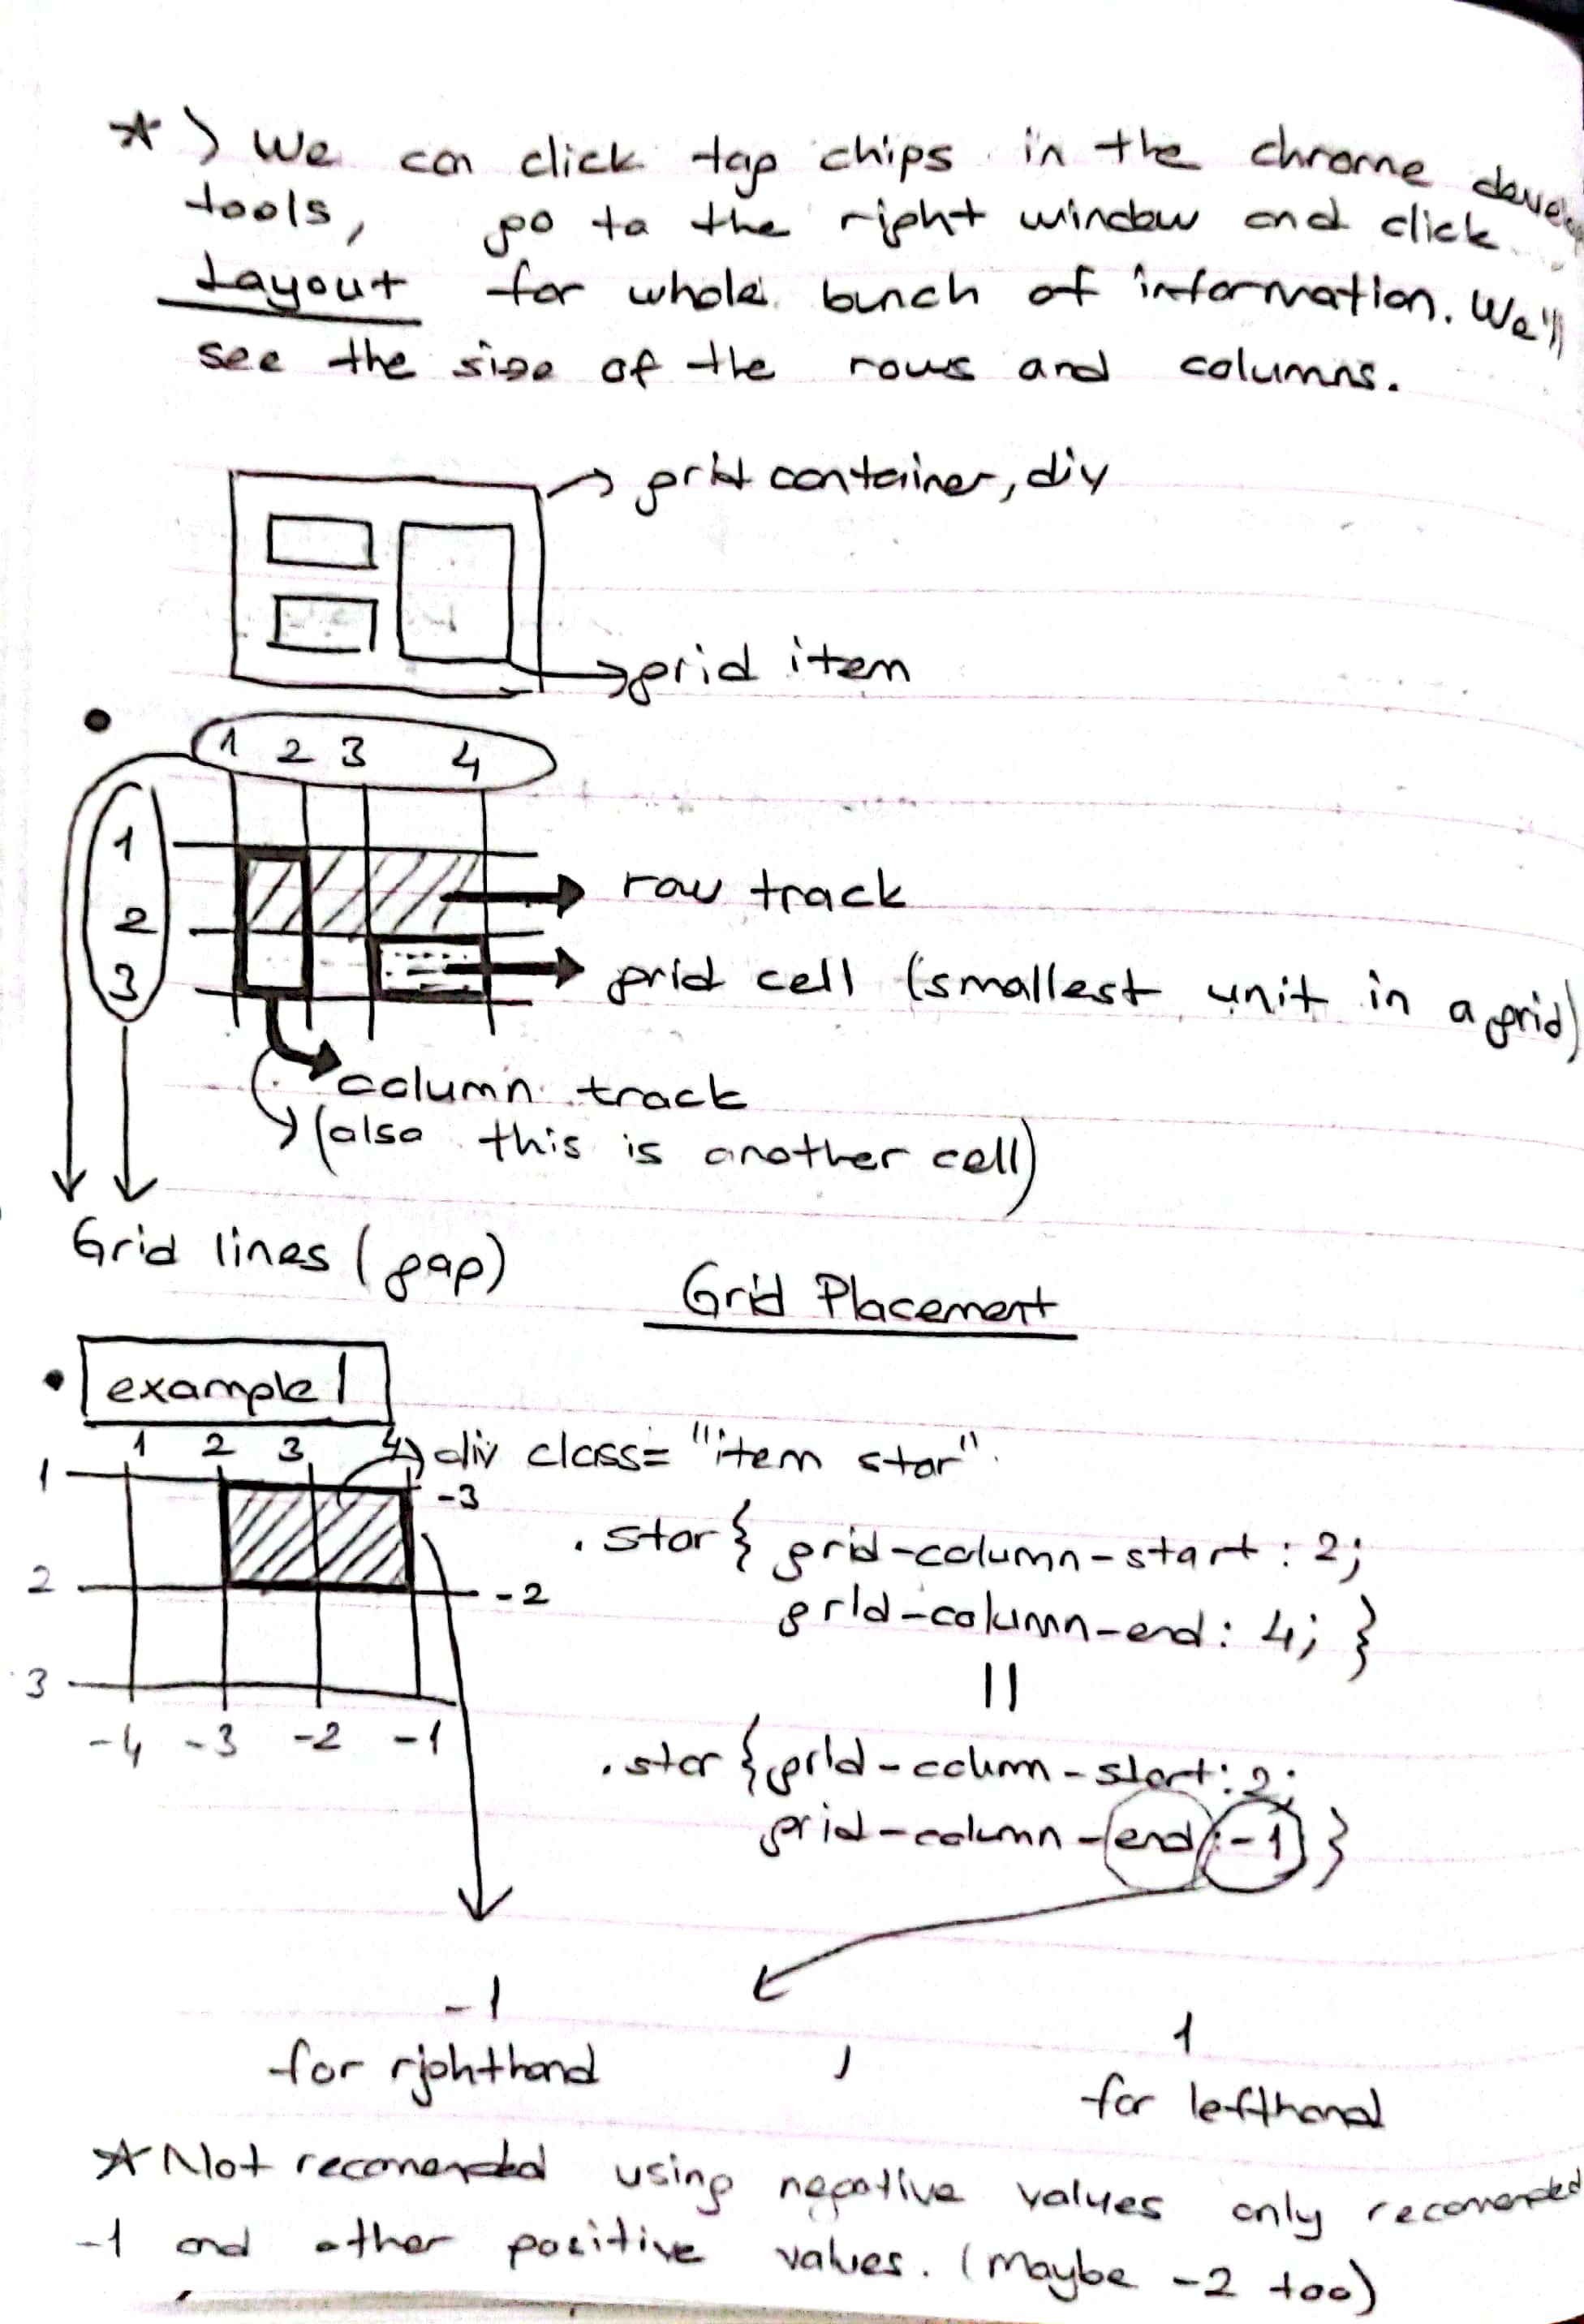 *) We can click tap chips in the chrome deve
tools, go to the right window and click
Layout for whole bunch of information. We'll
see the size of the rows and columns.
grid container, div
grid item
1 2 3 4
1
row track
2
grid cell (smallest unit in a grid)
3
column track
(also this is another cell)
Grid lines (gap)
Grid Placement
• example 1
1 2 3 4 div class= "item star"
1 -3
.star { grid-column-start : 2;
2 -2
grid-column-end: 4; }
||
3
-4 -3 -2 -1
.star {grid-column-start: 2;
grid-column-end: -1 }
-1 1
for righthand , for lefthand
* Not recomended using negative values only recomended
-1 and other positive values. (Maybe -2 too)